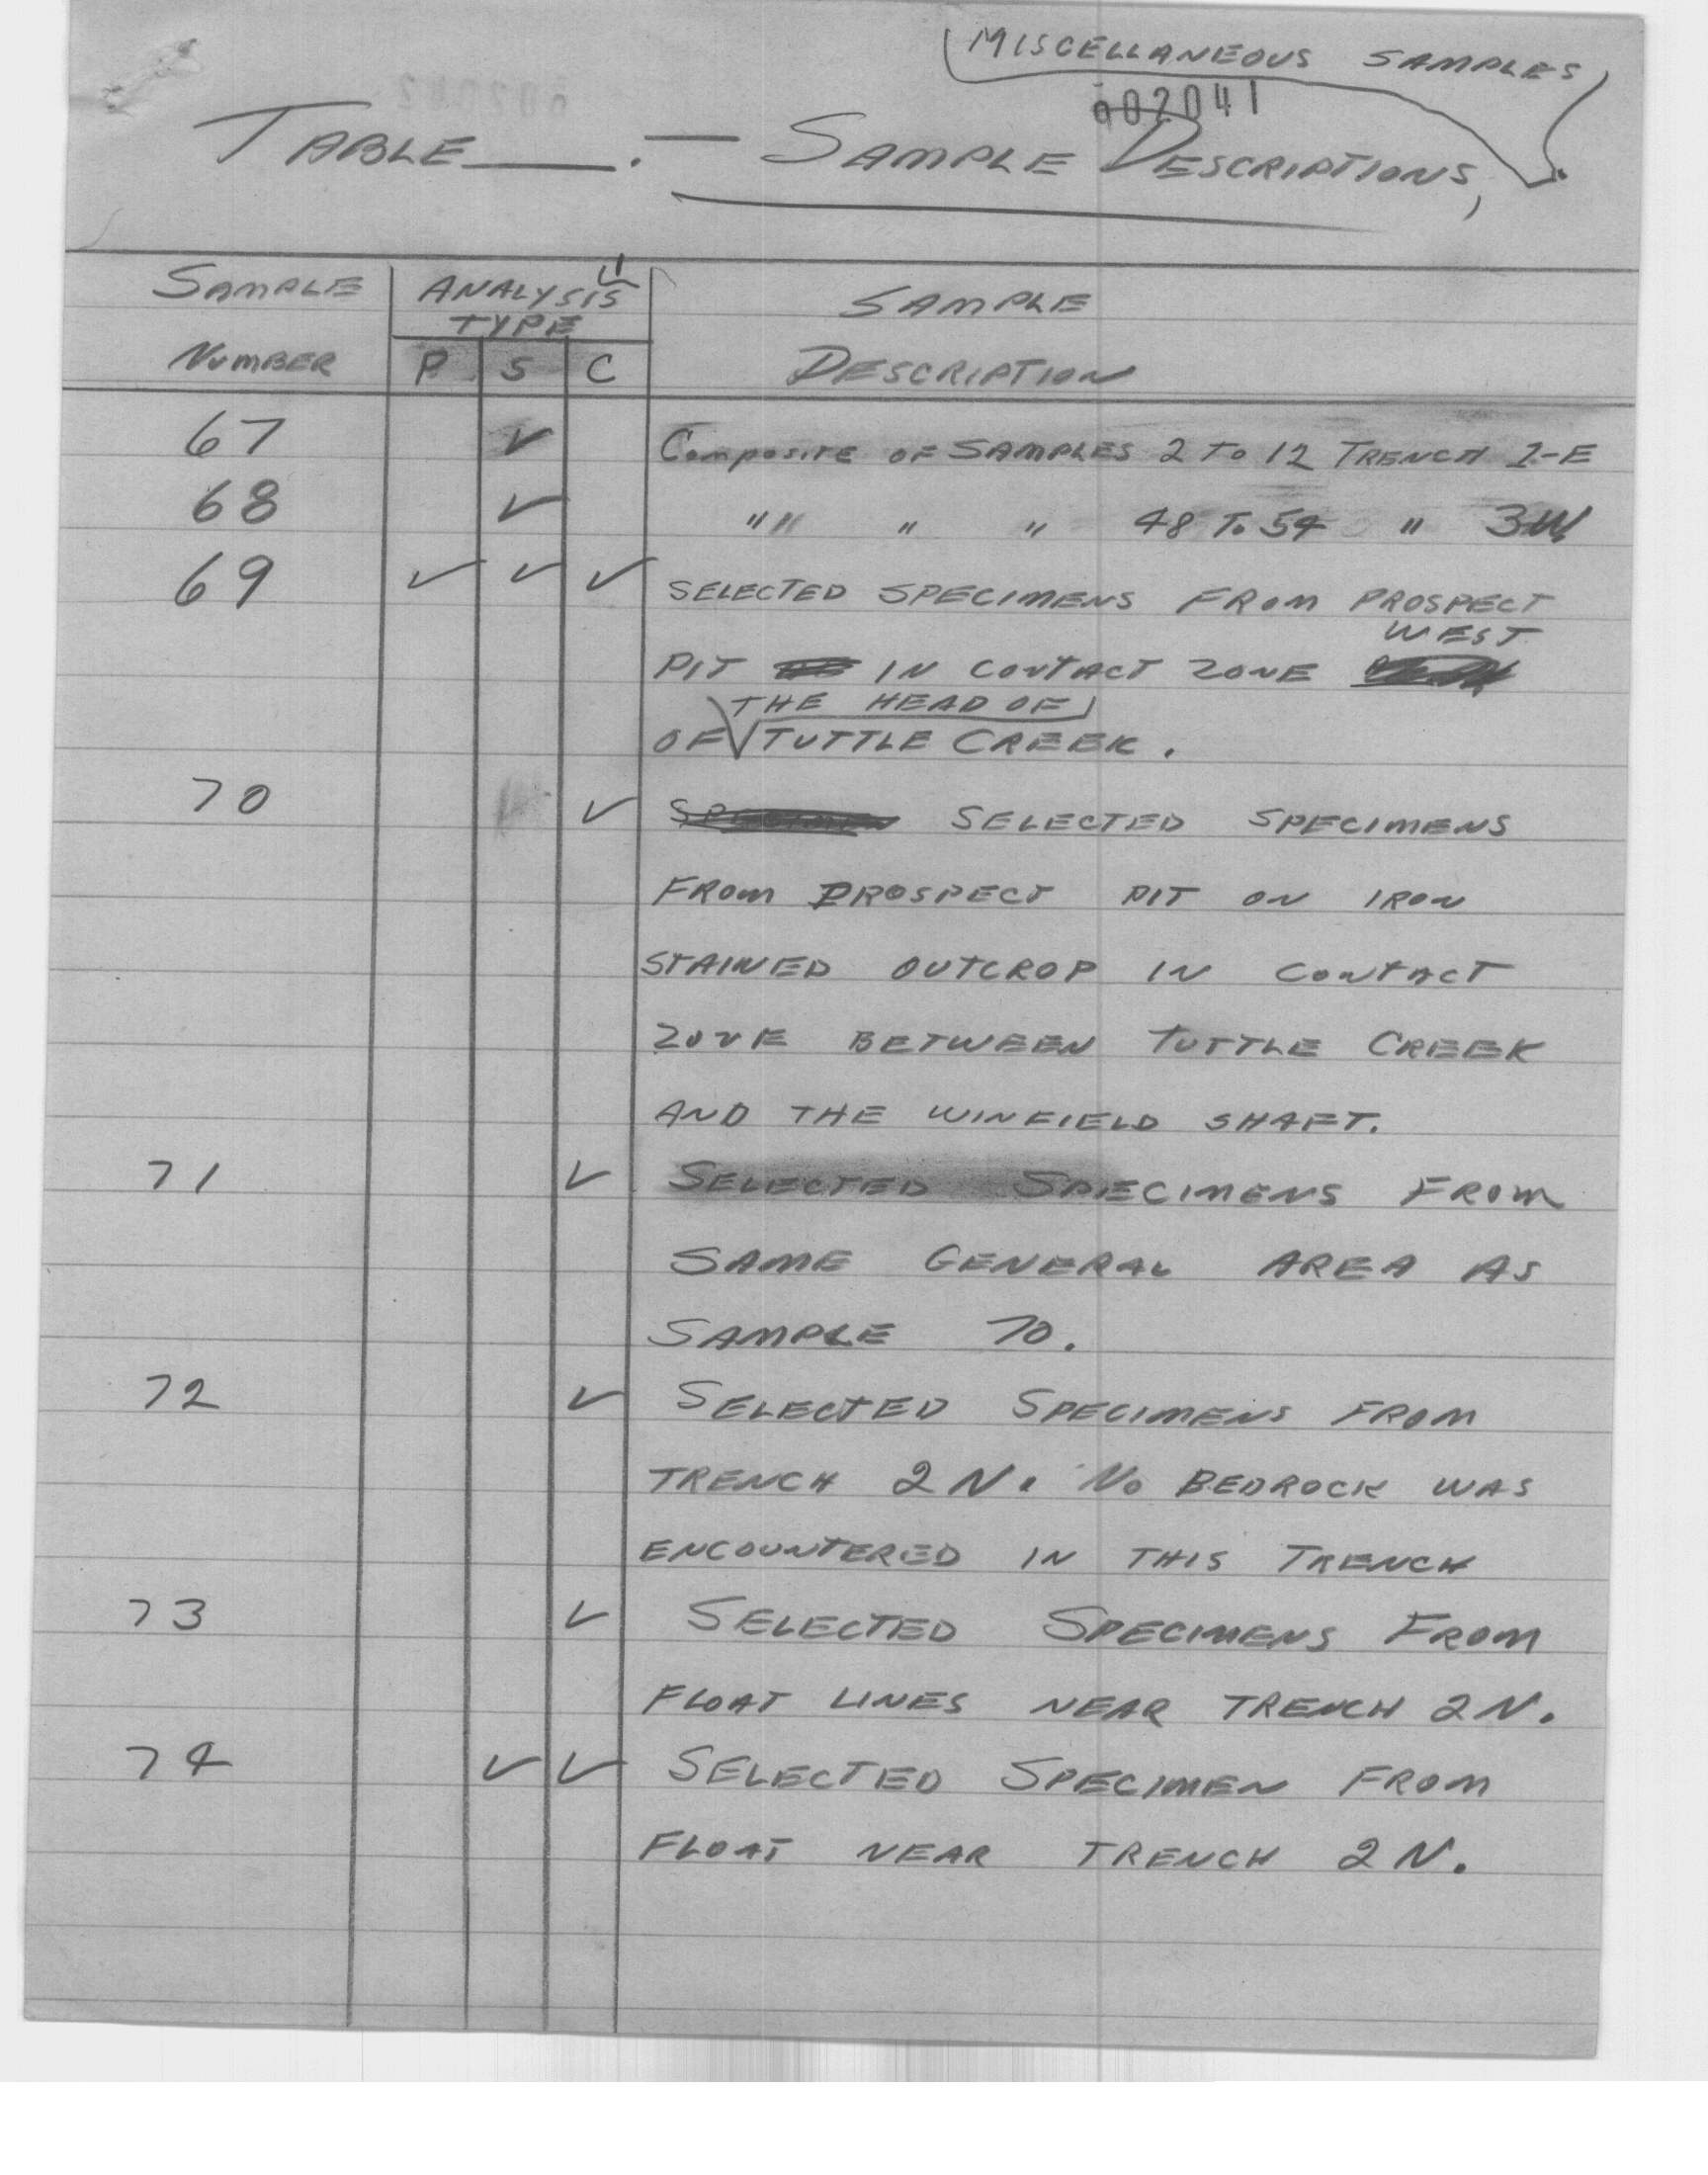 MISCELLANEOUS SAMPLES
002041
TABLE ____. — SAMPLE DESCRIPTIONS,
SAMPLE NUMBER ANALYSIS 1/ TYPE SAMPLE DESCRIPTION
P S C
67 ✓ Composite OF SAMPLES 2 To 12 TRENCH 1-E
68 ✓ " " " " 48 To 54 " 3W
69 ✓ ✓ ✓ SELECTED SPECIMENS FROM PROSPECT
WEST
PIT IN CONTACT ZONE
THE HEAD OF
OF TUTTLE CREEK.
70 ✓ SPECIMEN SELECTED SPECIMENS
FROM PROSPECT PIT ON IRON
STAINED OUTCROP IN CONTACT
ZONE BETWEEN TUTTLE CREEK
AND THE WINFIELD SHAFT.
71 ✓ SELECTED SPECIMENS FROM
SAME GENERAL AREA AS
SAMPLE 70.
72 ✓ SELECTED SPECIMENS FROM
TRENCH 2N. No BEDROCK WAS
ENCOUNTERED IN THIS TRENCH
73 ✓ SELECTED SPECIMENS FROM
FLOAT LINES NEAR TRENCH 2N.
74 ✓ ✓ SELECTED SPECIMEN FROM
FLOAT NEAR TRENCH 2N.